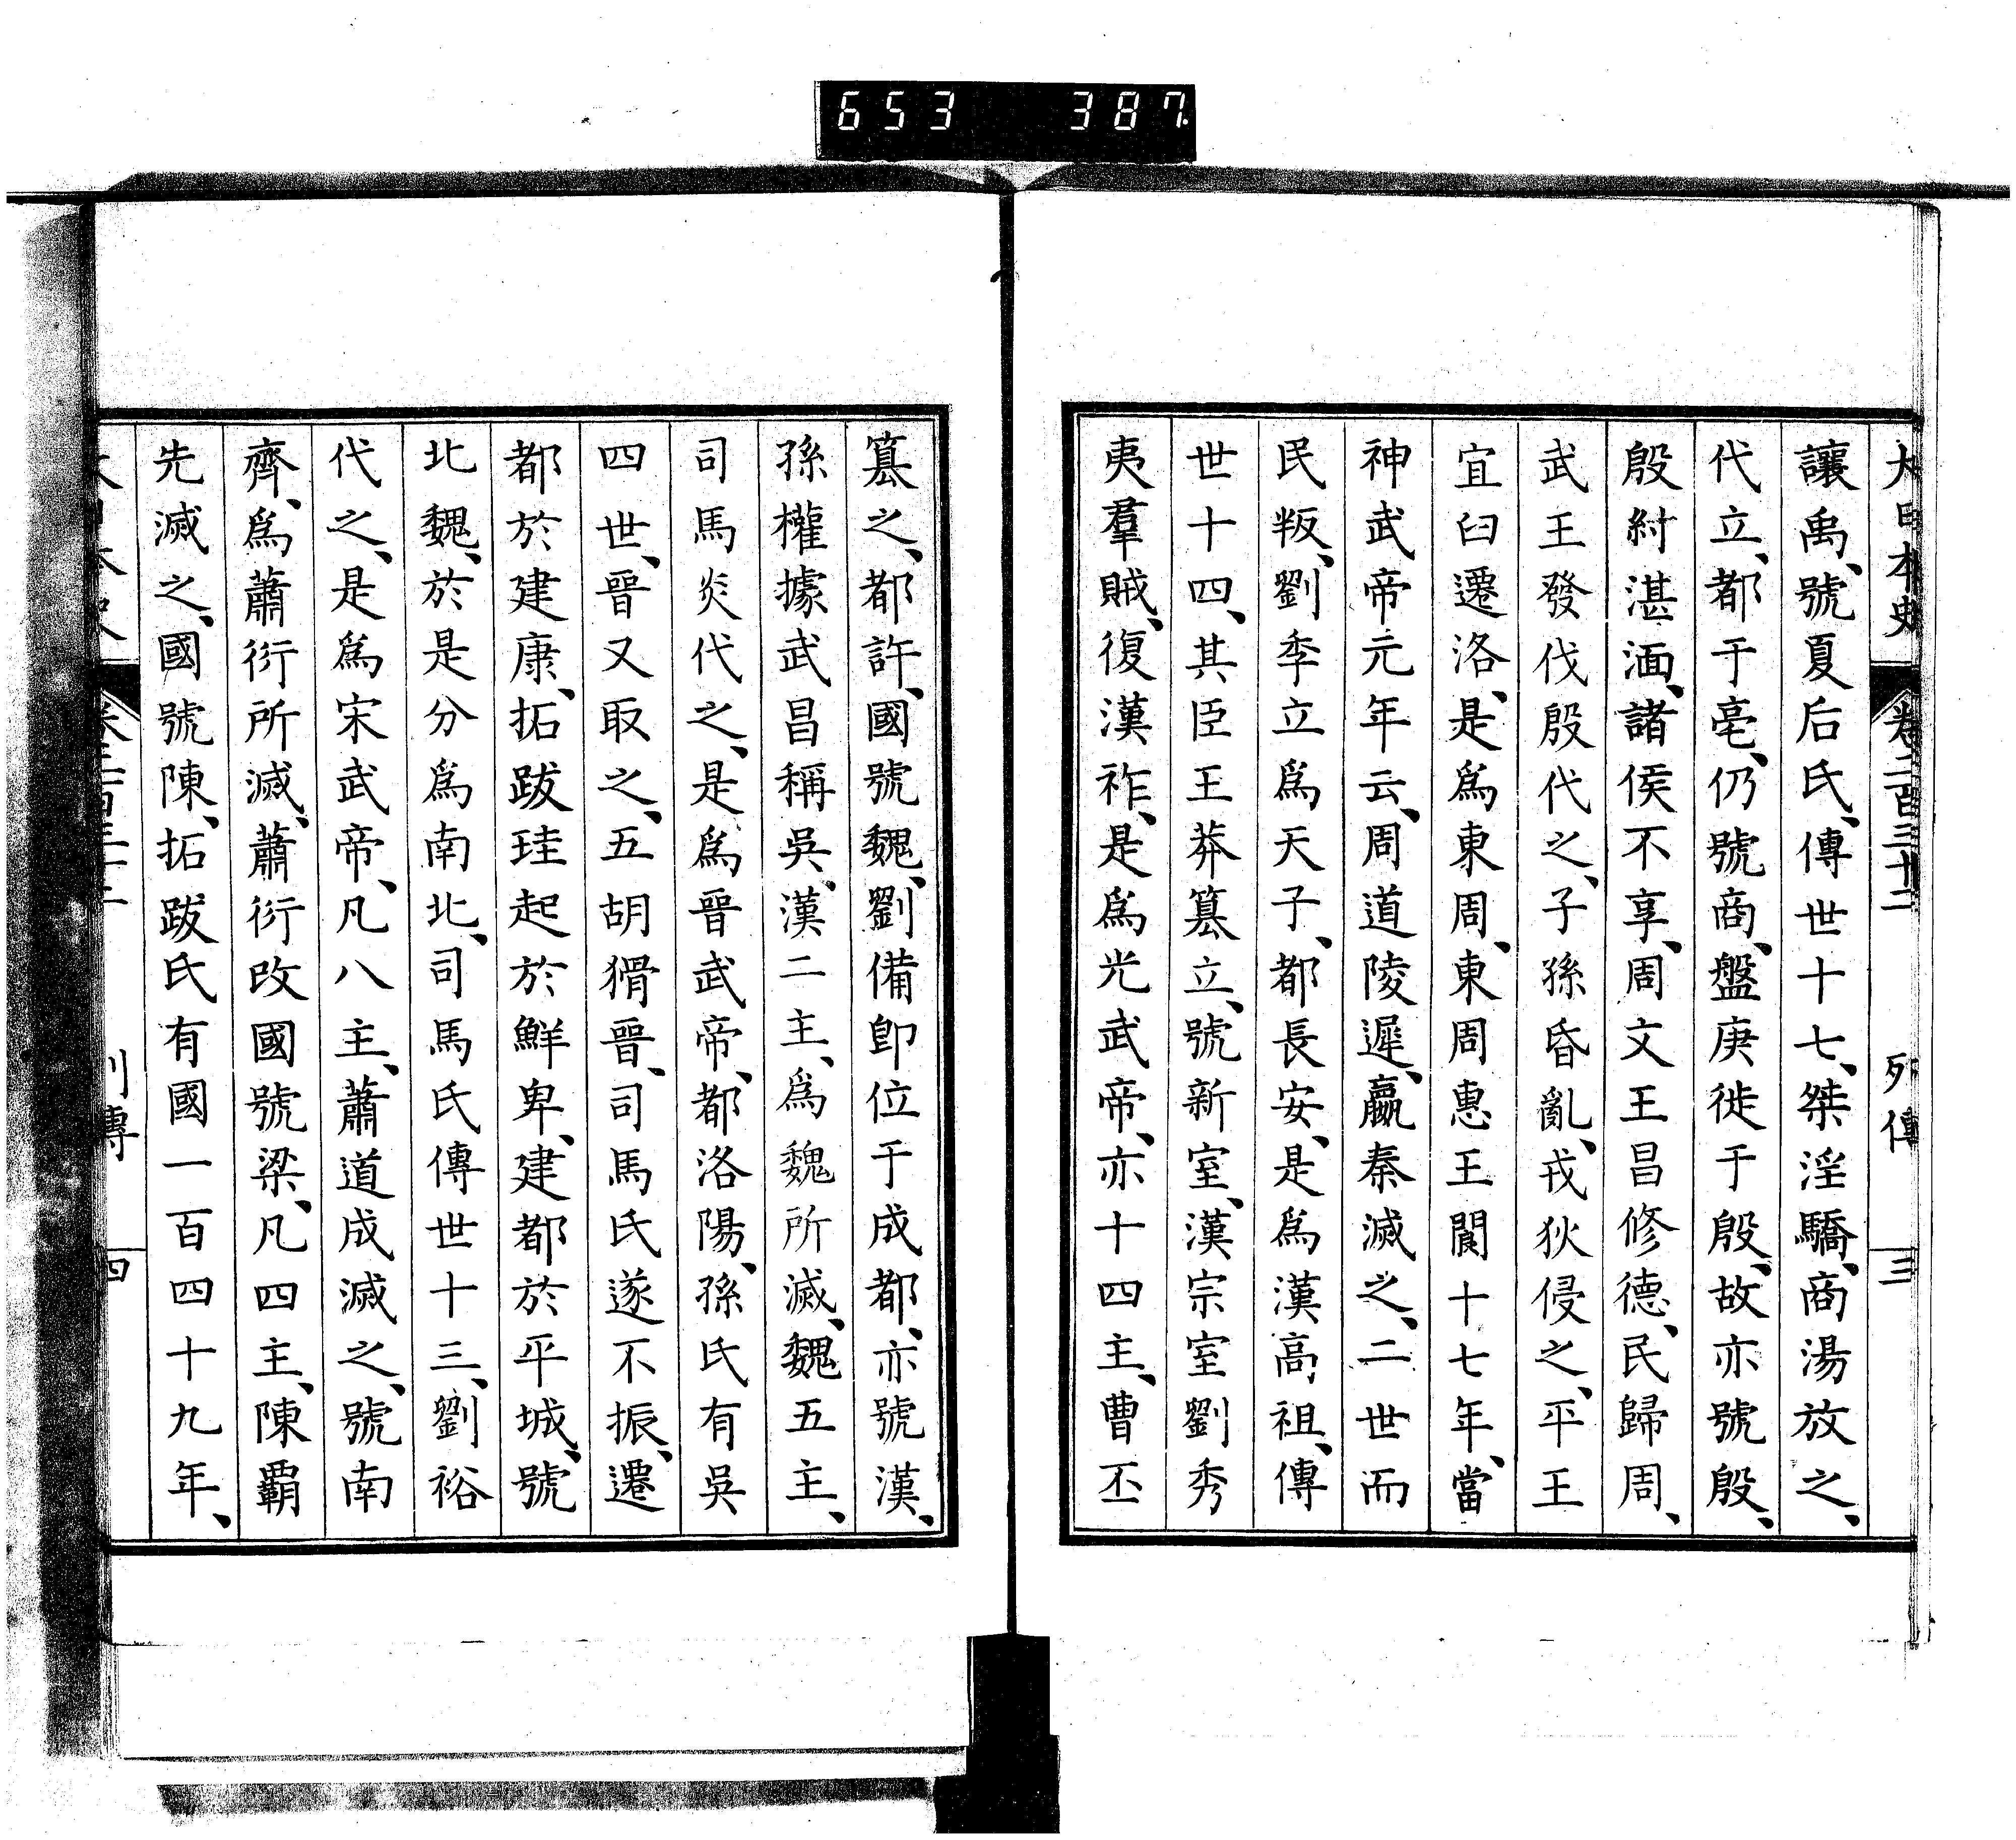 653 387
大日本史 卷二百三十二 列傳 三
讓禹、號夏后氏、傳世十七、桀淫驕、商湯放之、
代立、都于亳、仍號商、盤庚徙于殷、故亦號殷、
殷紂湛湎、諸侯不享、周文王昌修德、民歸周、
武王發伐殷代之、子孫昏亂、戎狄侵之、平王
宜臼遷洛、是爲東周、東周惠王閬十七年、當
神武帝元年云、周道陵遲、嬴秦滅之、二世而
民叛、劉季立爲天子、都長安、是爲漢高祖、傳
世十四、其臣王莽簒立、號新室、漢宗室劉秀
夷羣賊、復漢祚、是爲光武帝、亦十四主、曹丕
簒之、都許、國號魏、劉備卽位于成都、亦號漢、
孫權據武昌稱吳、漢二主、爲魏所滅、魏五主、
司馬炎代之、是爲晉武帝、都洛陽、孫氏有吳
四世、晉又取之、五胡猾晉、司馬氏遂不振、遷
都於建康、拓跋珪起於鮮卑、建都於平城、號
北魏、於是分爲南北、司馬氏傳世十三、劉裕
代之、是爲宋武帝、凡八主、蕭道成滅之、號南
齊、爲蕭衍所滅、蕭衍改國號梁、凡四主、陳覇
先滅之、國號陳、拓跋氏有國一百四十九年、
列傳 四